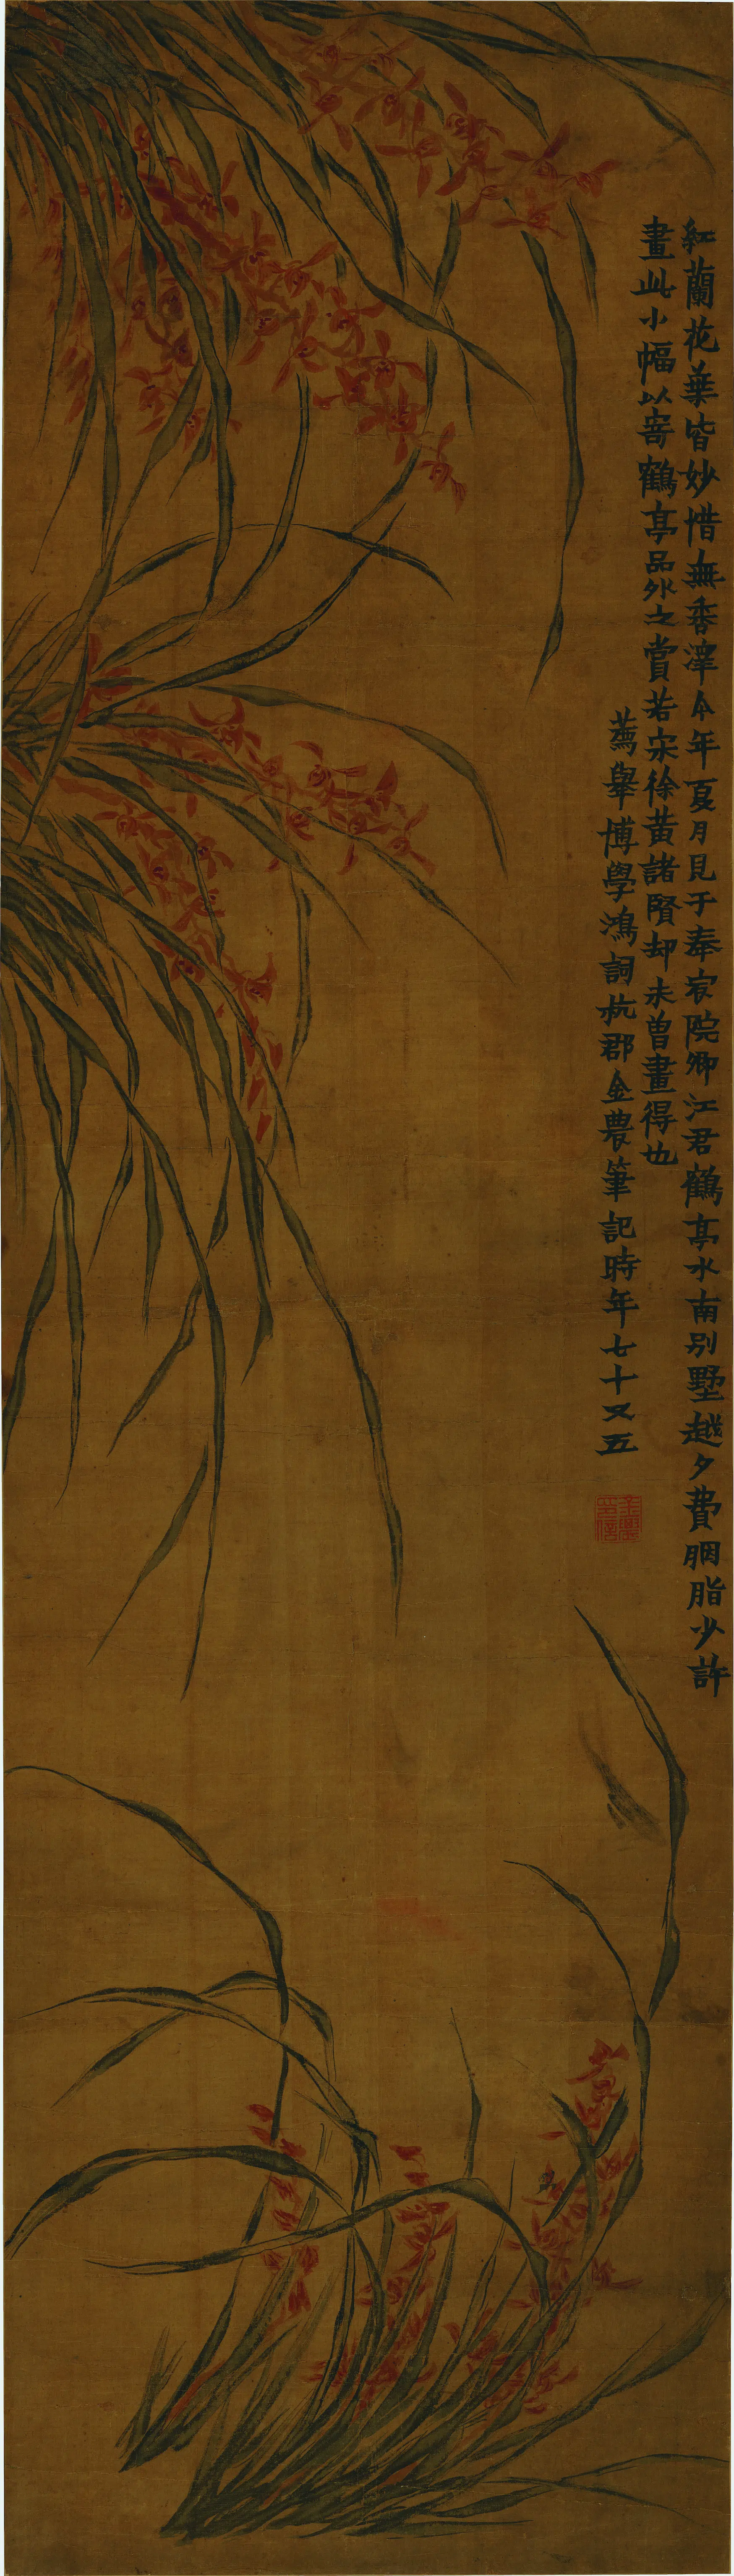 紅蘭花葉皆妙惜無香澤今年夏月見于奉宸院卿江君鶴亭水南別墅越夕費胭脂少許
畫此小幅以寄鶴亭品外之賞若宋徐黃諸賢却未曾畫得也
薦舉博學鴻詞杭郡金農筆記時年七十又五
金農印信